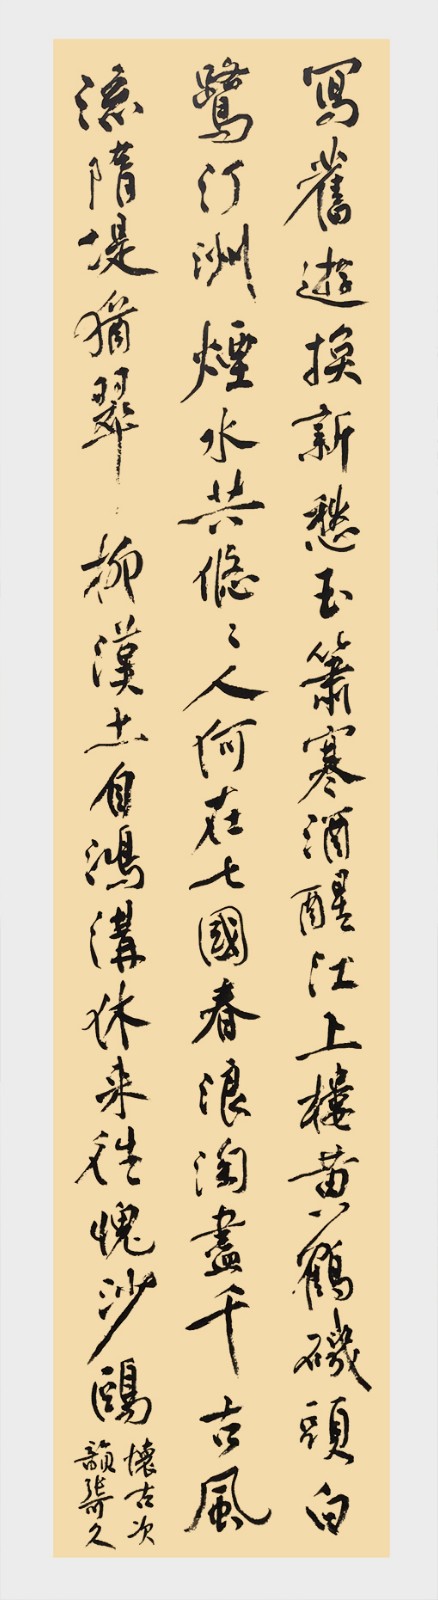 寫舊遊換新愁玉簫寒酒醒江上樓黃鶴磯頭白
鷺汀洲煙水共悠々人何在七國春浪淘盡千古風
流隋堤猶翠柳漢土自鴻溝休来往愧沙鷗
懷古次
韻張可久